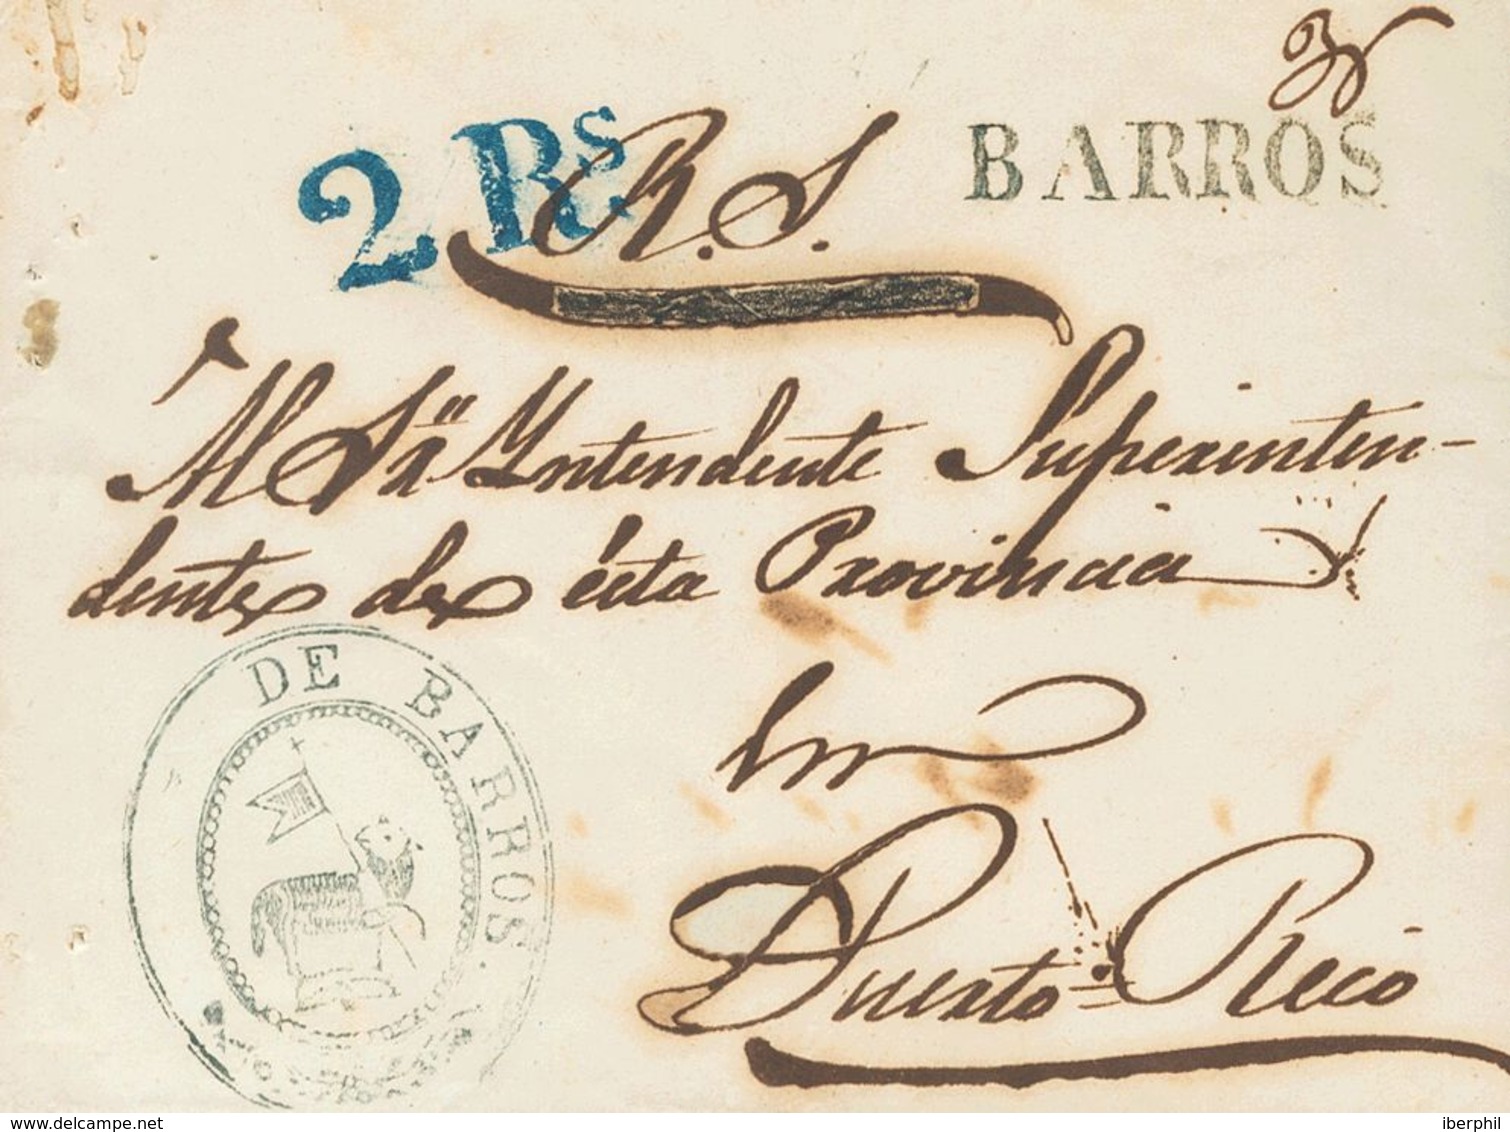 2 Rs
R. S.
BARROS
Al Sr. Yntendente Superinten-
dente de ésta Provincia
En
Puerto Rico
DE BARROS.
delcampe.net
iberphil